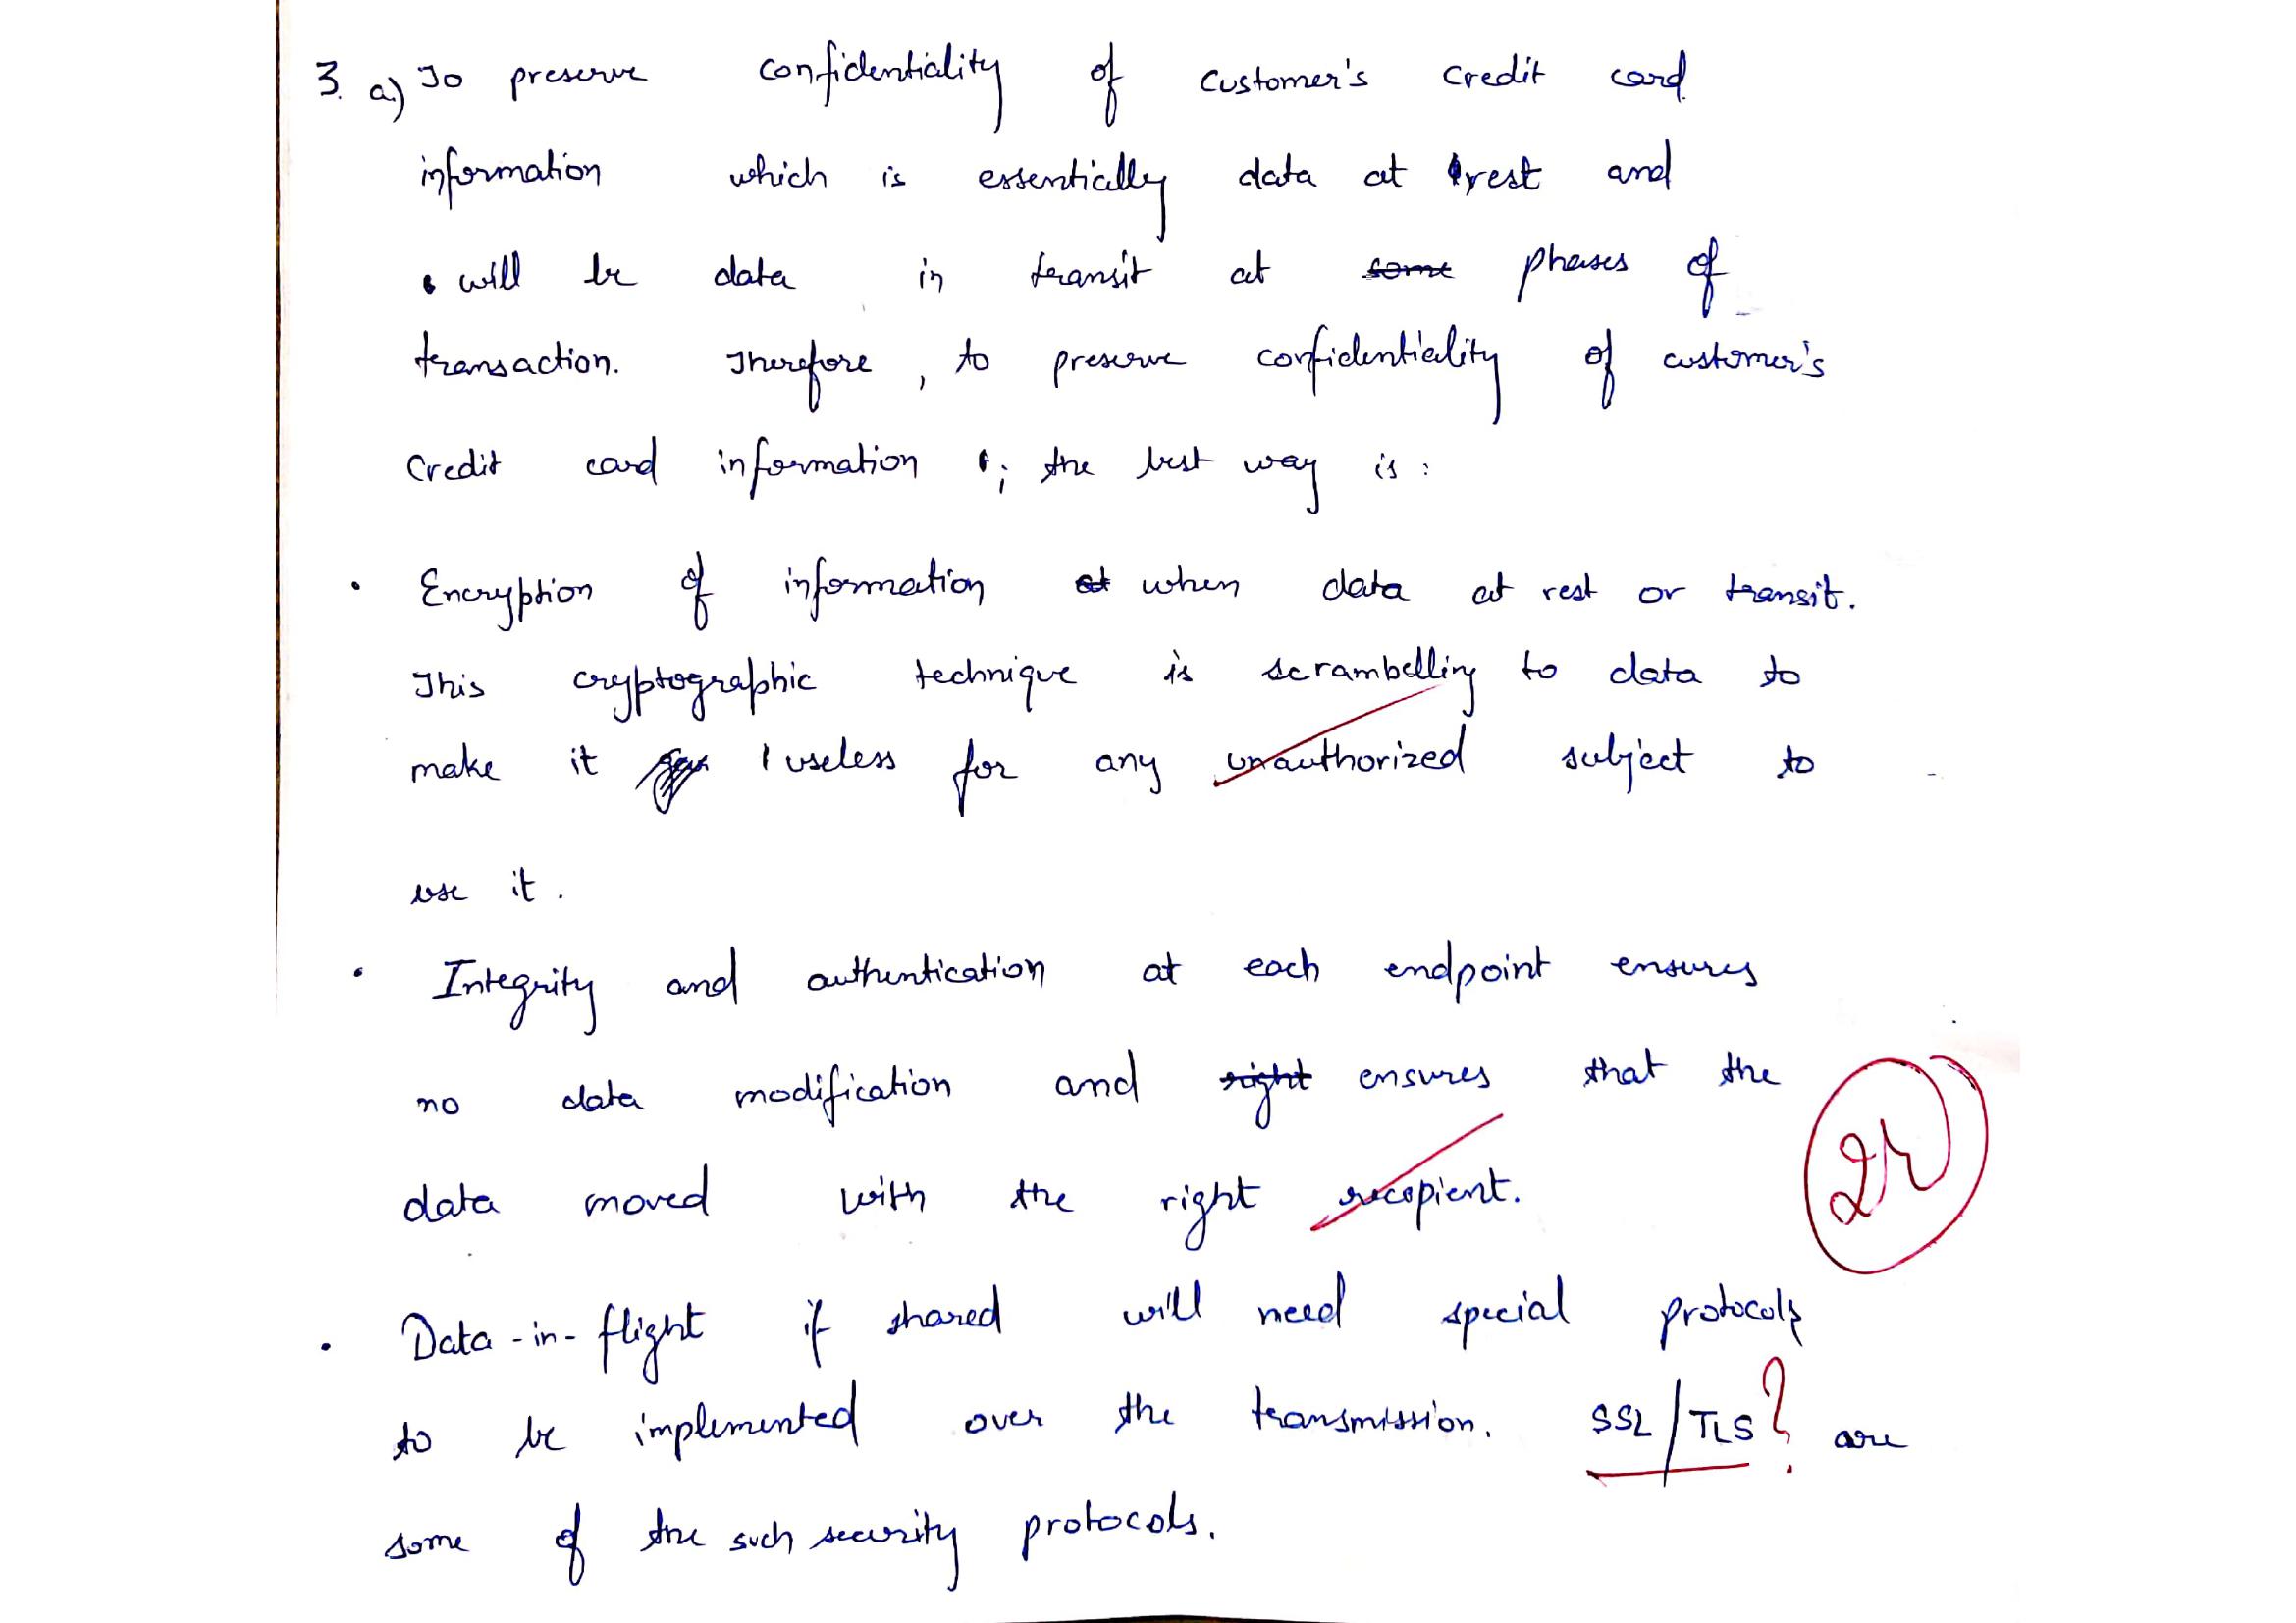 3. a) To preserve confidentiality of customer's credit card
information which is essentially data at rest and
will be data in transit at some phases of
transaction. Therefore, to preserve confidentiality of customer's
credit card information ; the best way is :
• Encryption of information at when data at rest or transit.
This cryptographic technique is scrambelling to data to
make it useless for any unauthorized subject to
use it.
• Integrity and authentication at each endpoint ensures
no data modification and right ensures that the
data moved with the right recepient.
• Data-in-flight if shared will need special protocols
to be implemented over the transmission. SSL/TLS ? are
some of the such security protocols.